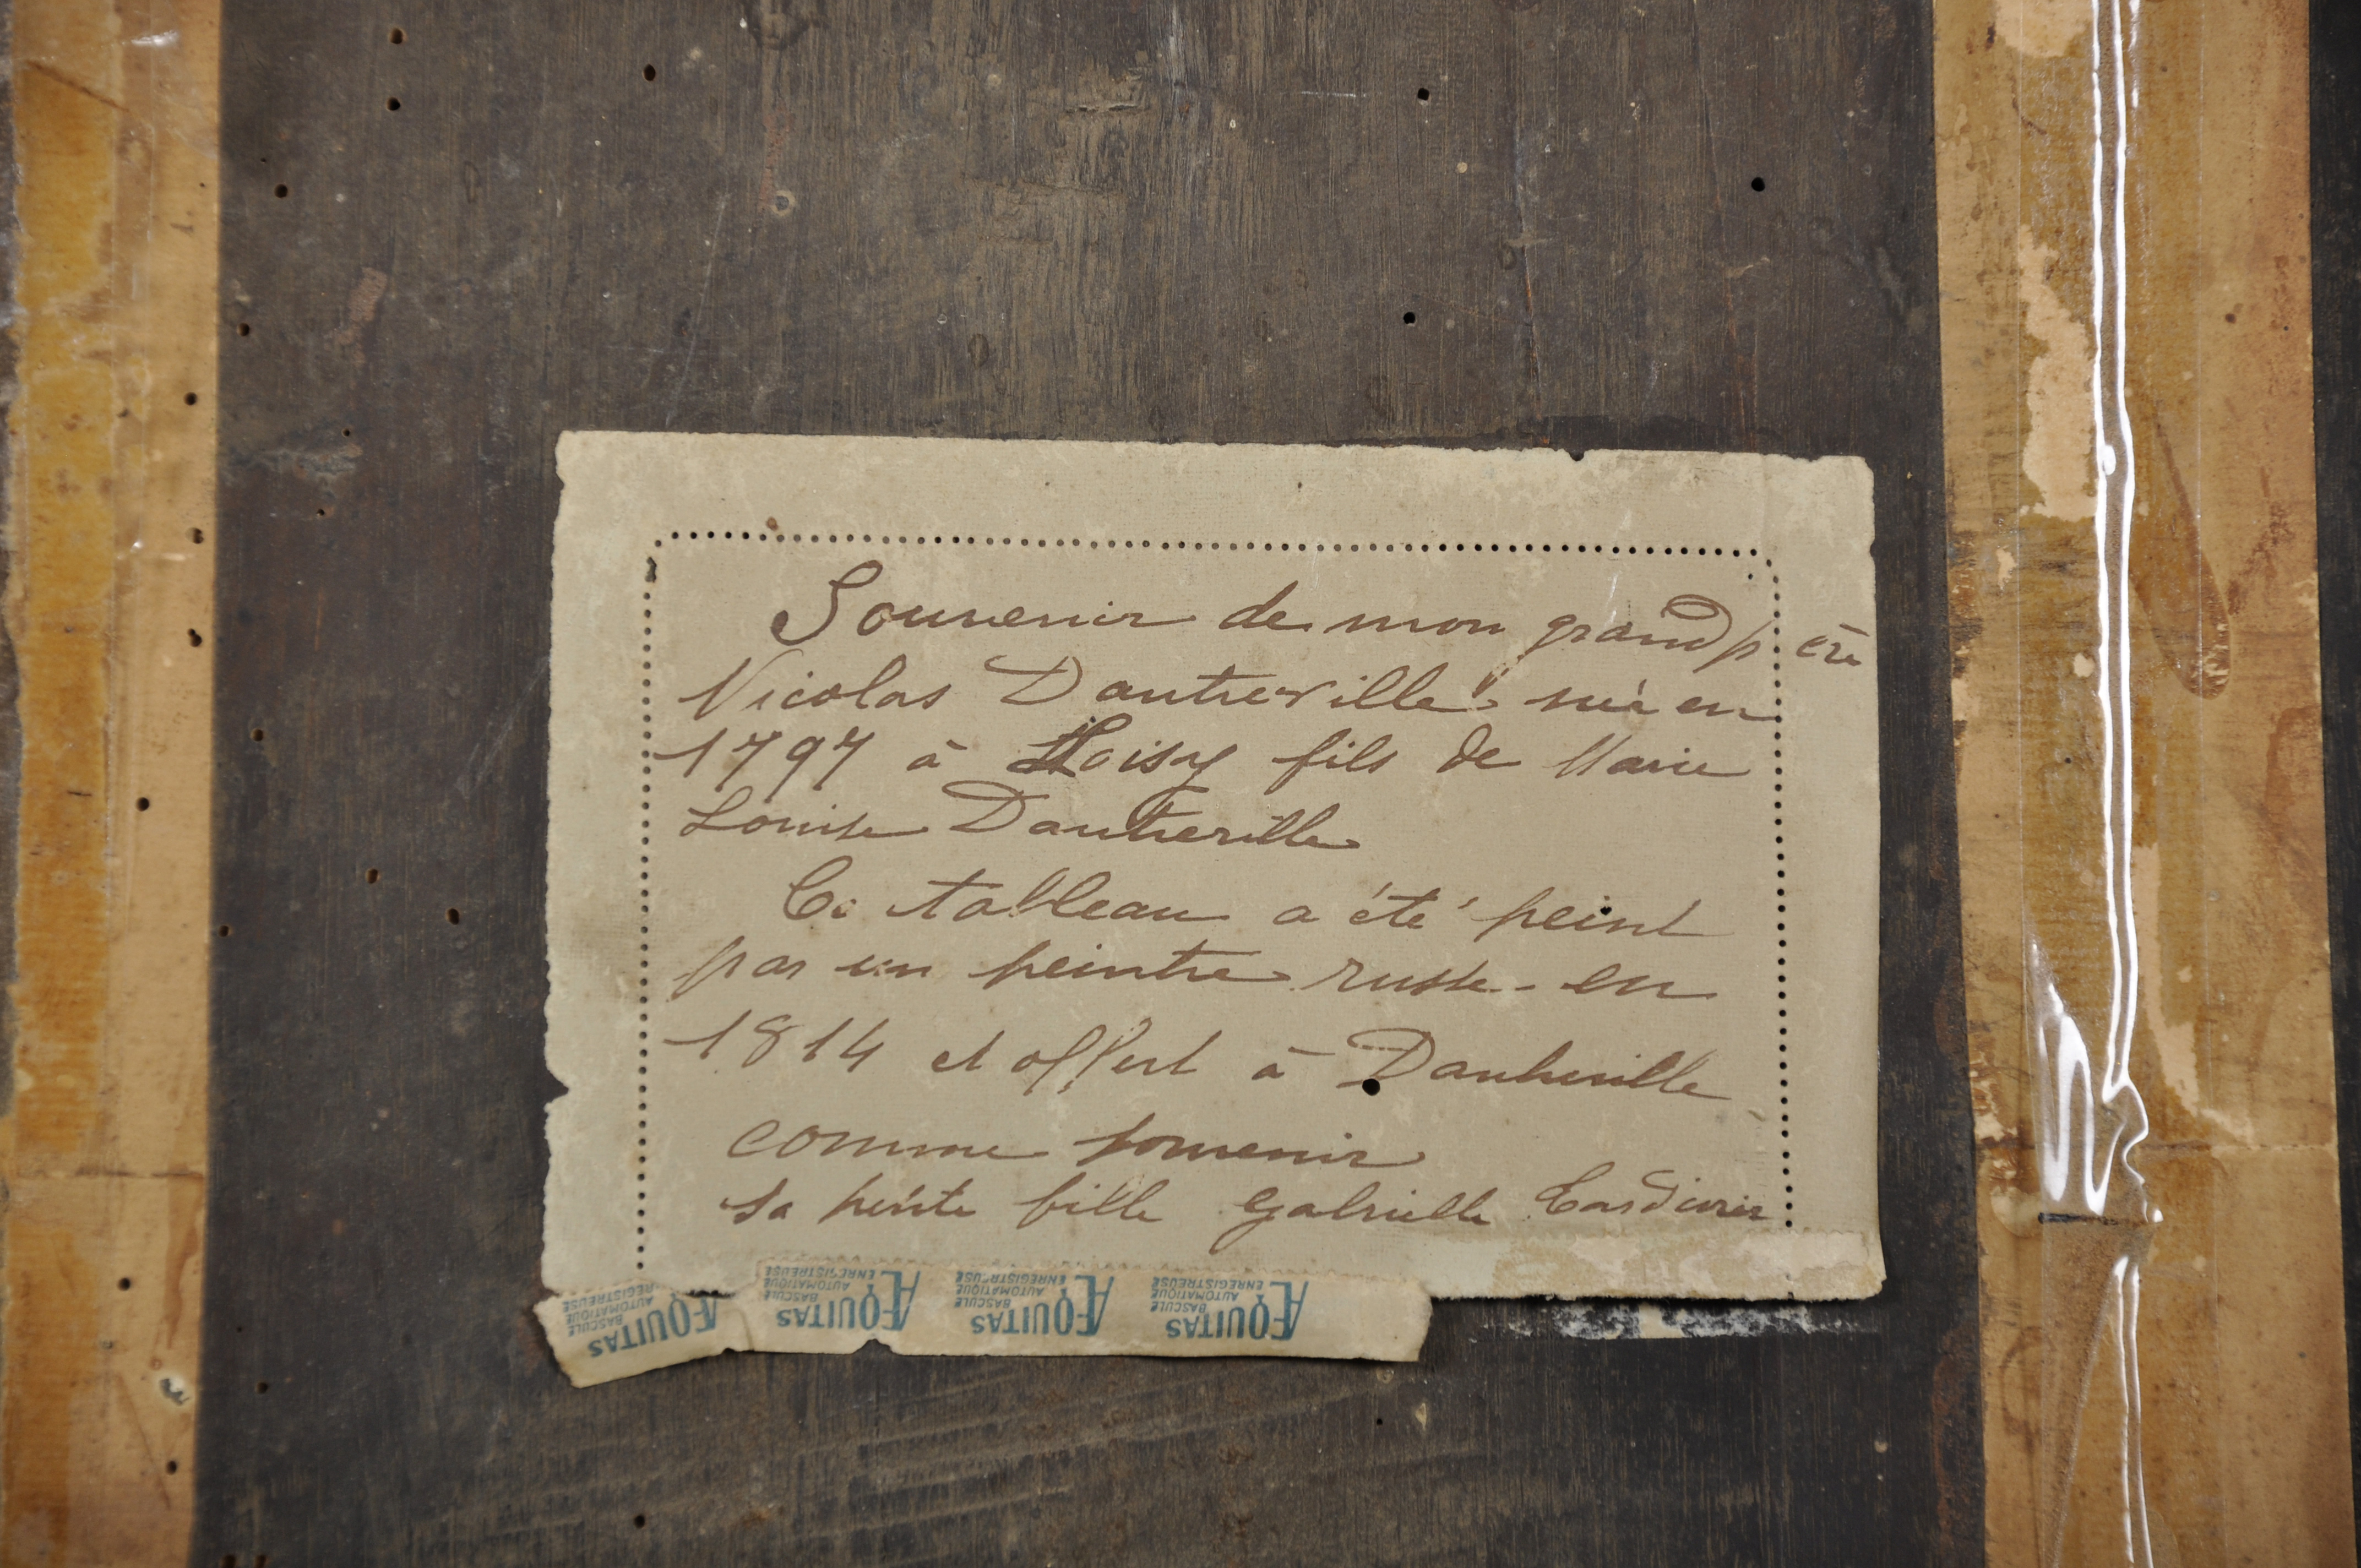 Souvenir de mon grand père
Nicolas Dautreville né en
1797 à Loisy fils de Marie
Louise Dautreville
Ce tableau a été peint
par un peintre russe en
1814 et offert à Dautreville
comme souvenir
Sa petite fille Gabrielle
ÆQUITAS
BASCULE
AUTOMATIQUE
REGISTREUSE
ÆQUITAS
BASCULE
AUTOMATIQUE
ENREGISTREUSE
ÆQUITAS
BASCULE
AUTOMATIQUE
ENREGISTREUSE
ÆQUITAS
BASCULE
AUTOMATIQUE
ENREGISTREUSE